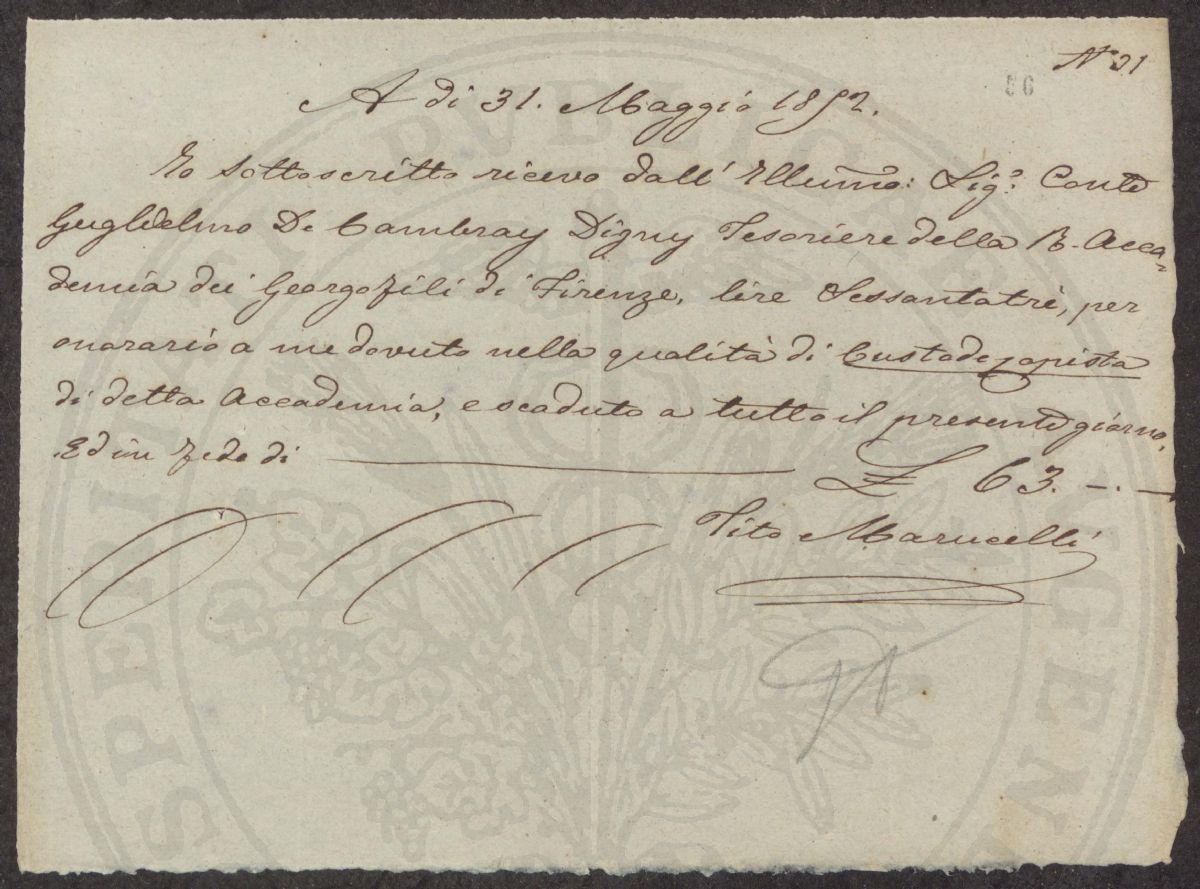 N° 31
56
A di 31. Maggio 1852.
Io sottoscritto ricevo dall' Illumo: Sigr. Conte
Guglielmo De Cambray Digny Tesoriere della R. Acca-
demia dei Georgofili di Firenze, lire Sessantatrè, per
onorario a me dovuto nella qualità di Custode, copista
di detta Accademia, e scaduto a tutto il presente giorno,
Ed in fede di £ 63. -.-
Tito Marucelli